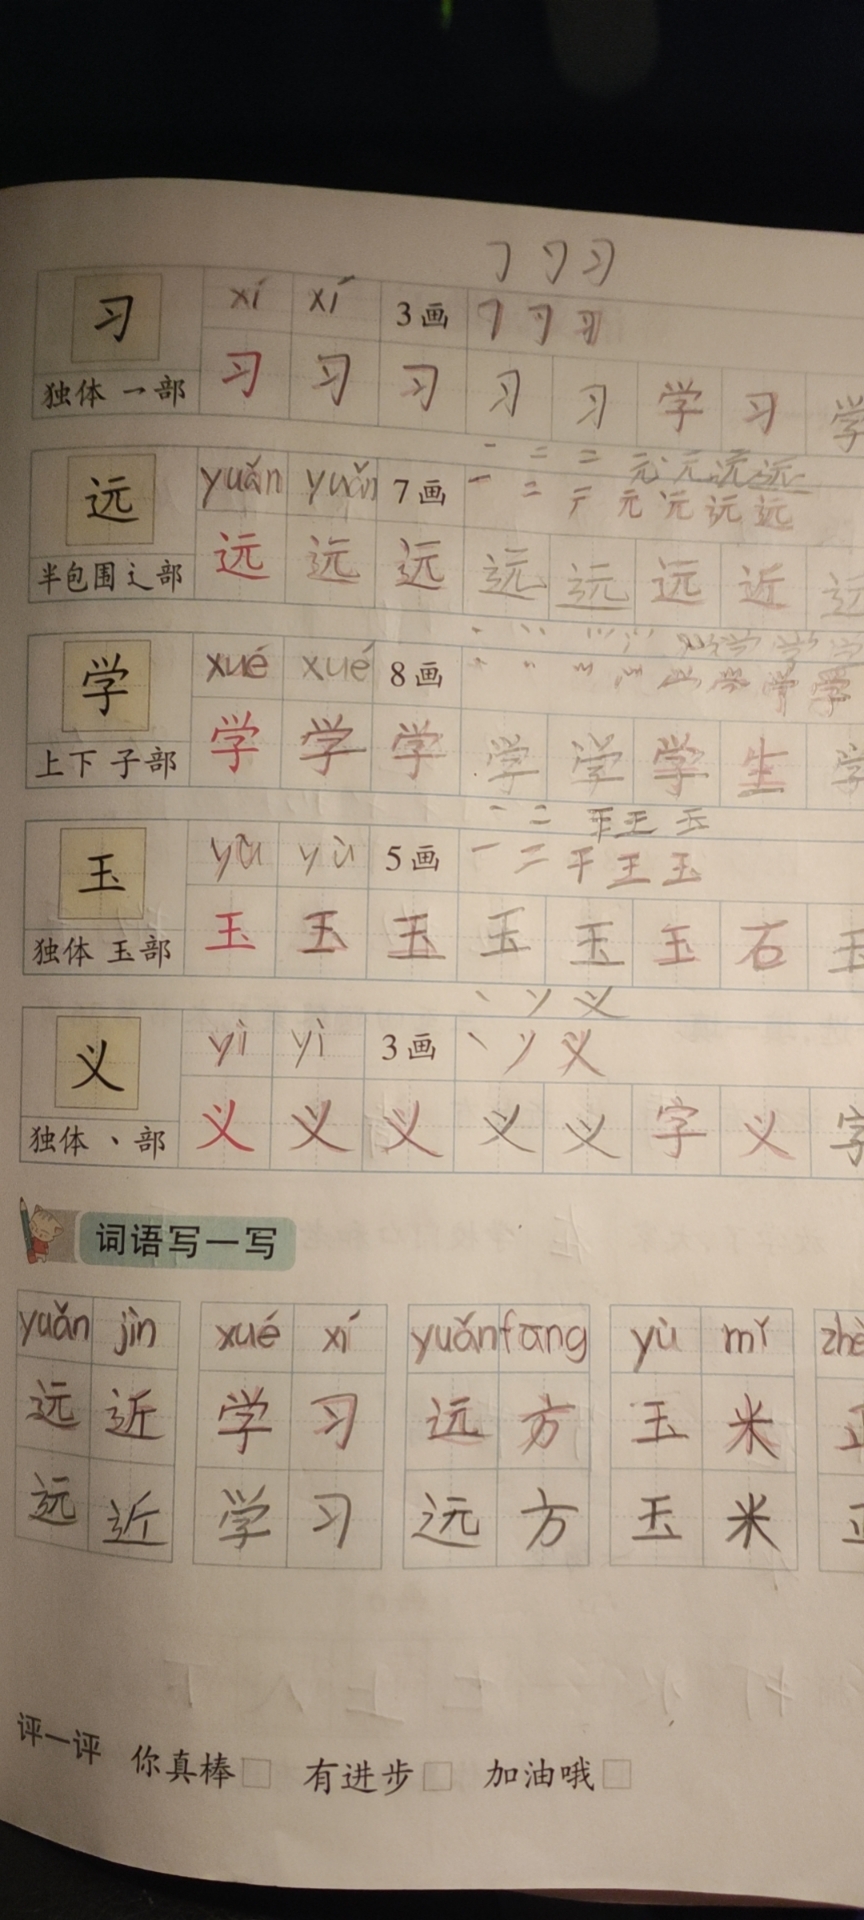 ㇆ 习 习
习 xí xí 3画 ㇆ 习 习
独体 乛部 习 习 习 习 习 学 习 学
一 二 二 元 元 远 远
远 yuǎn yuǎn 7画 一 二 亍 元 元 远 远
半包围 辶部 远 远 远 远 远 远 近 远
学 xué xué 8画
上下 子部 学 学 学 学 学 学 生 学
一 二 王 王 玉
玉 yù yù 5画 一 二 干 王 玉
独体 玉部 玉 玉 玉 玉 玉 玉 石 玉
丶 丷 义
义 yì yì 3画 丶 丷 义
独体 丶部 义 义 义 义 义 字 义 字
词语写一写
yuǎn jìn xué xí yuǎn fāng yù mǐ
远 近 学 习 远 方 玉 米
远 近 学 习 远 方 玉 米
评一评 你真棒 有进步 加油哦